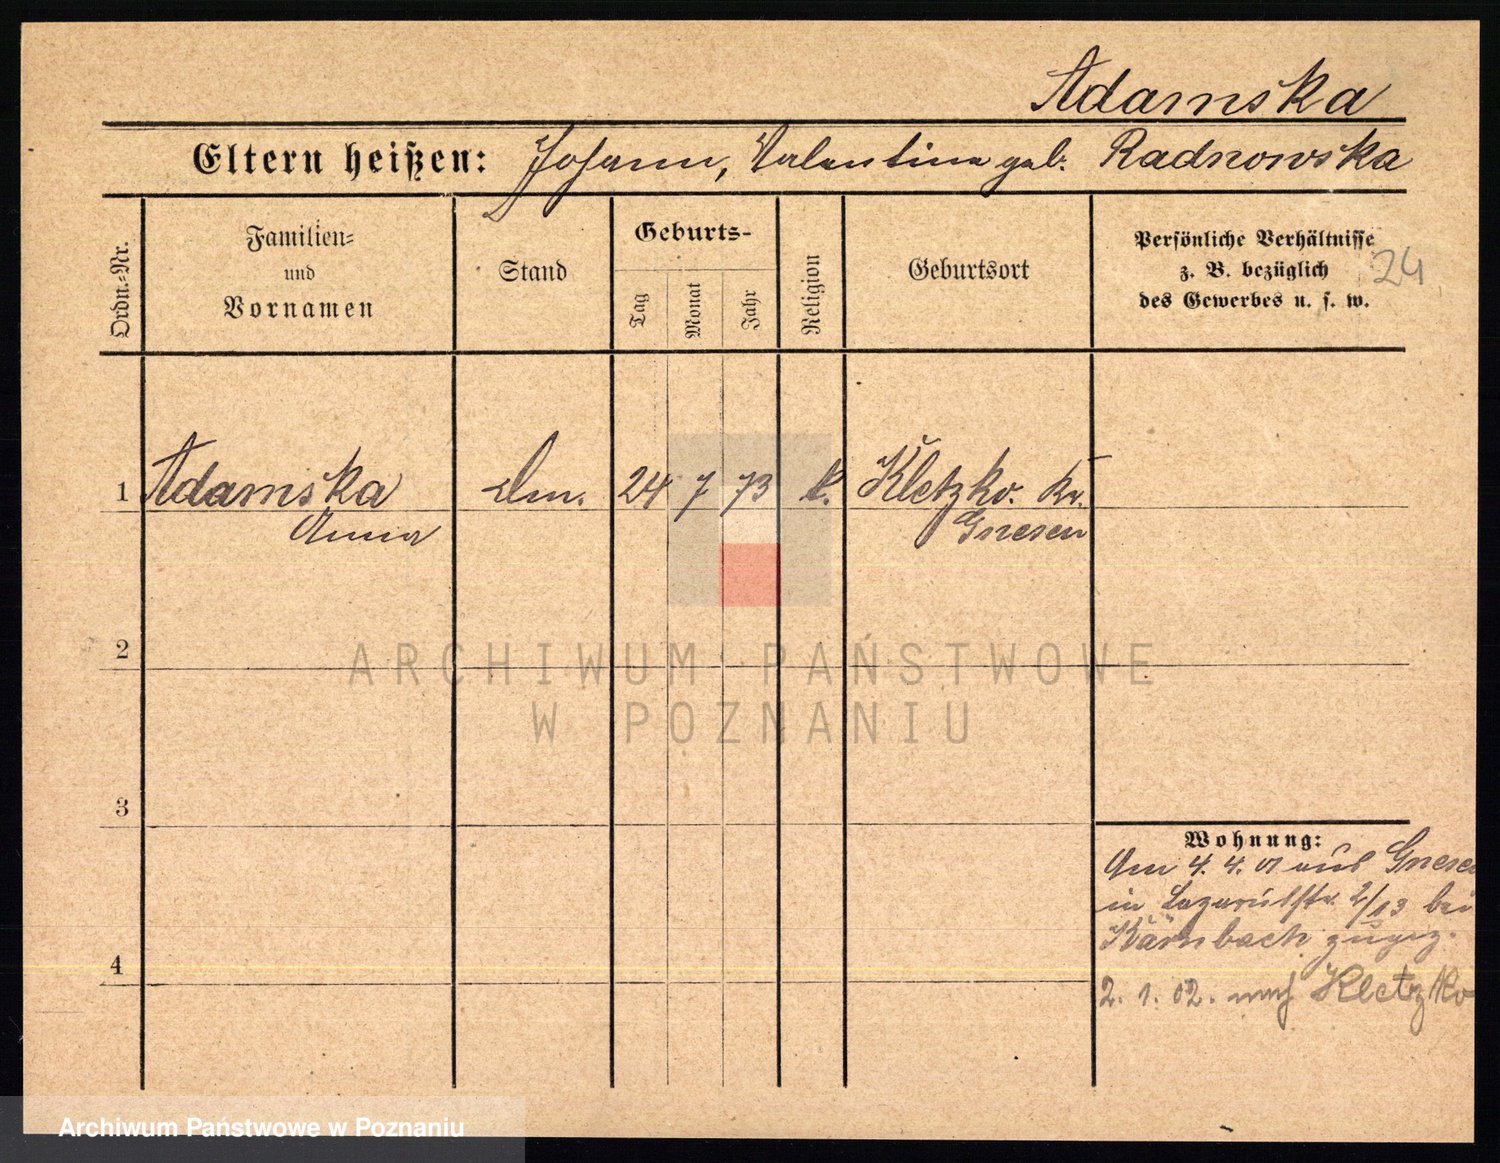 Adamska
Eltern heißen: Johann, Valentina geb. Radnowska
Ordn.-Nr.
Familien-
und
Vornamen
Stand
Geburts-
Tag
Monat
Jahr
Religion
Geburtsort
Persönliche Verhältnisse
z. B. bezüglich
des Gewerbes u. s. w.
24
1 Adamska 24 7 73 k. Kletzko. Kr.
Anna Gnesen
2
3
4
Wohnung:
Am 4. 4. 01 aus Gnesen
in 2/13 bei
Kärnbach zugez.
2. 1. 02. nach Kletzko
ARCHIWUM PAŃSTWOWE
W POZNANIU
Archiwum Państwowe w Poznaniu